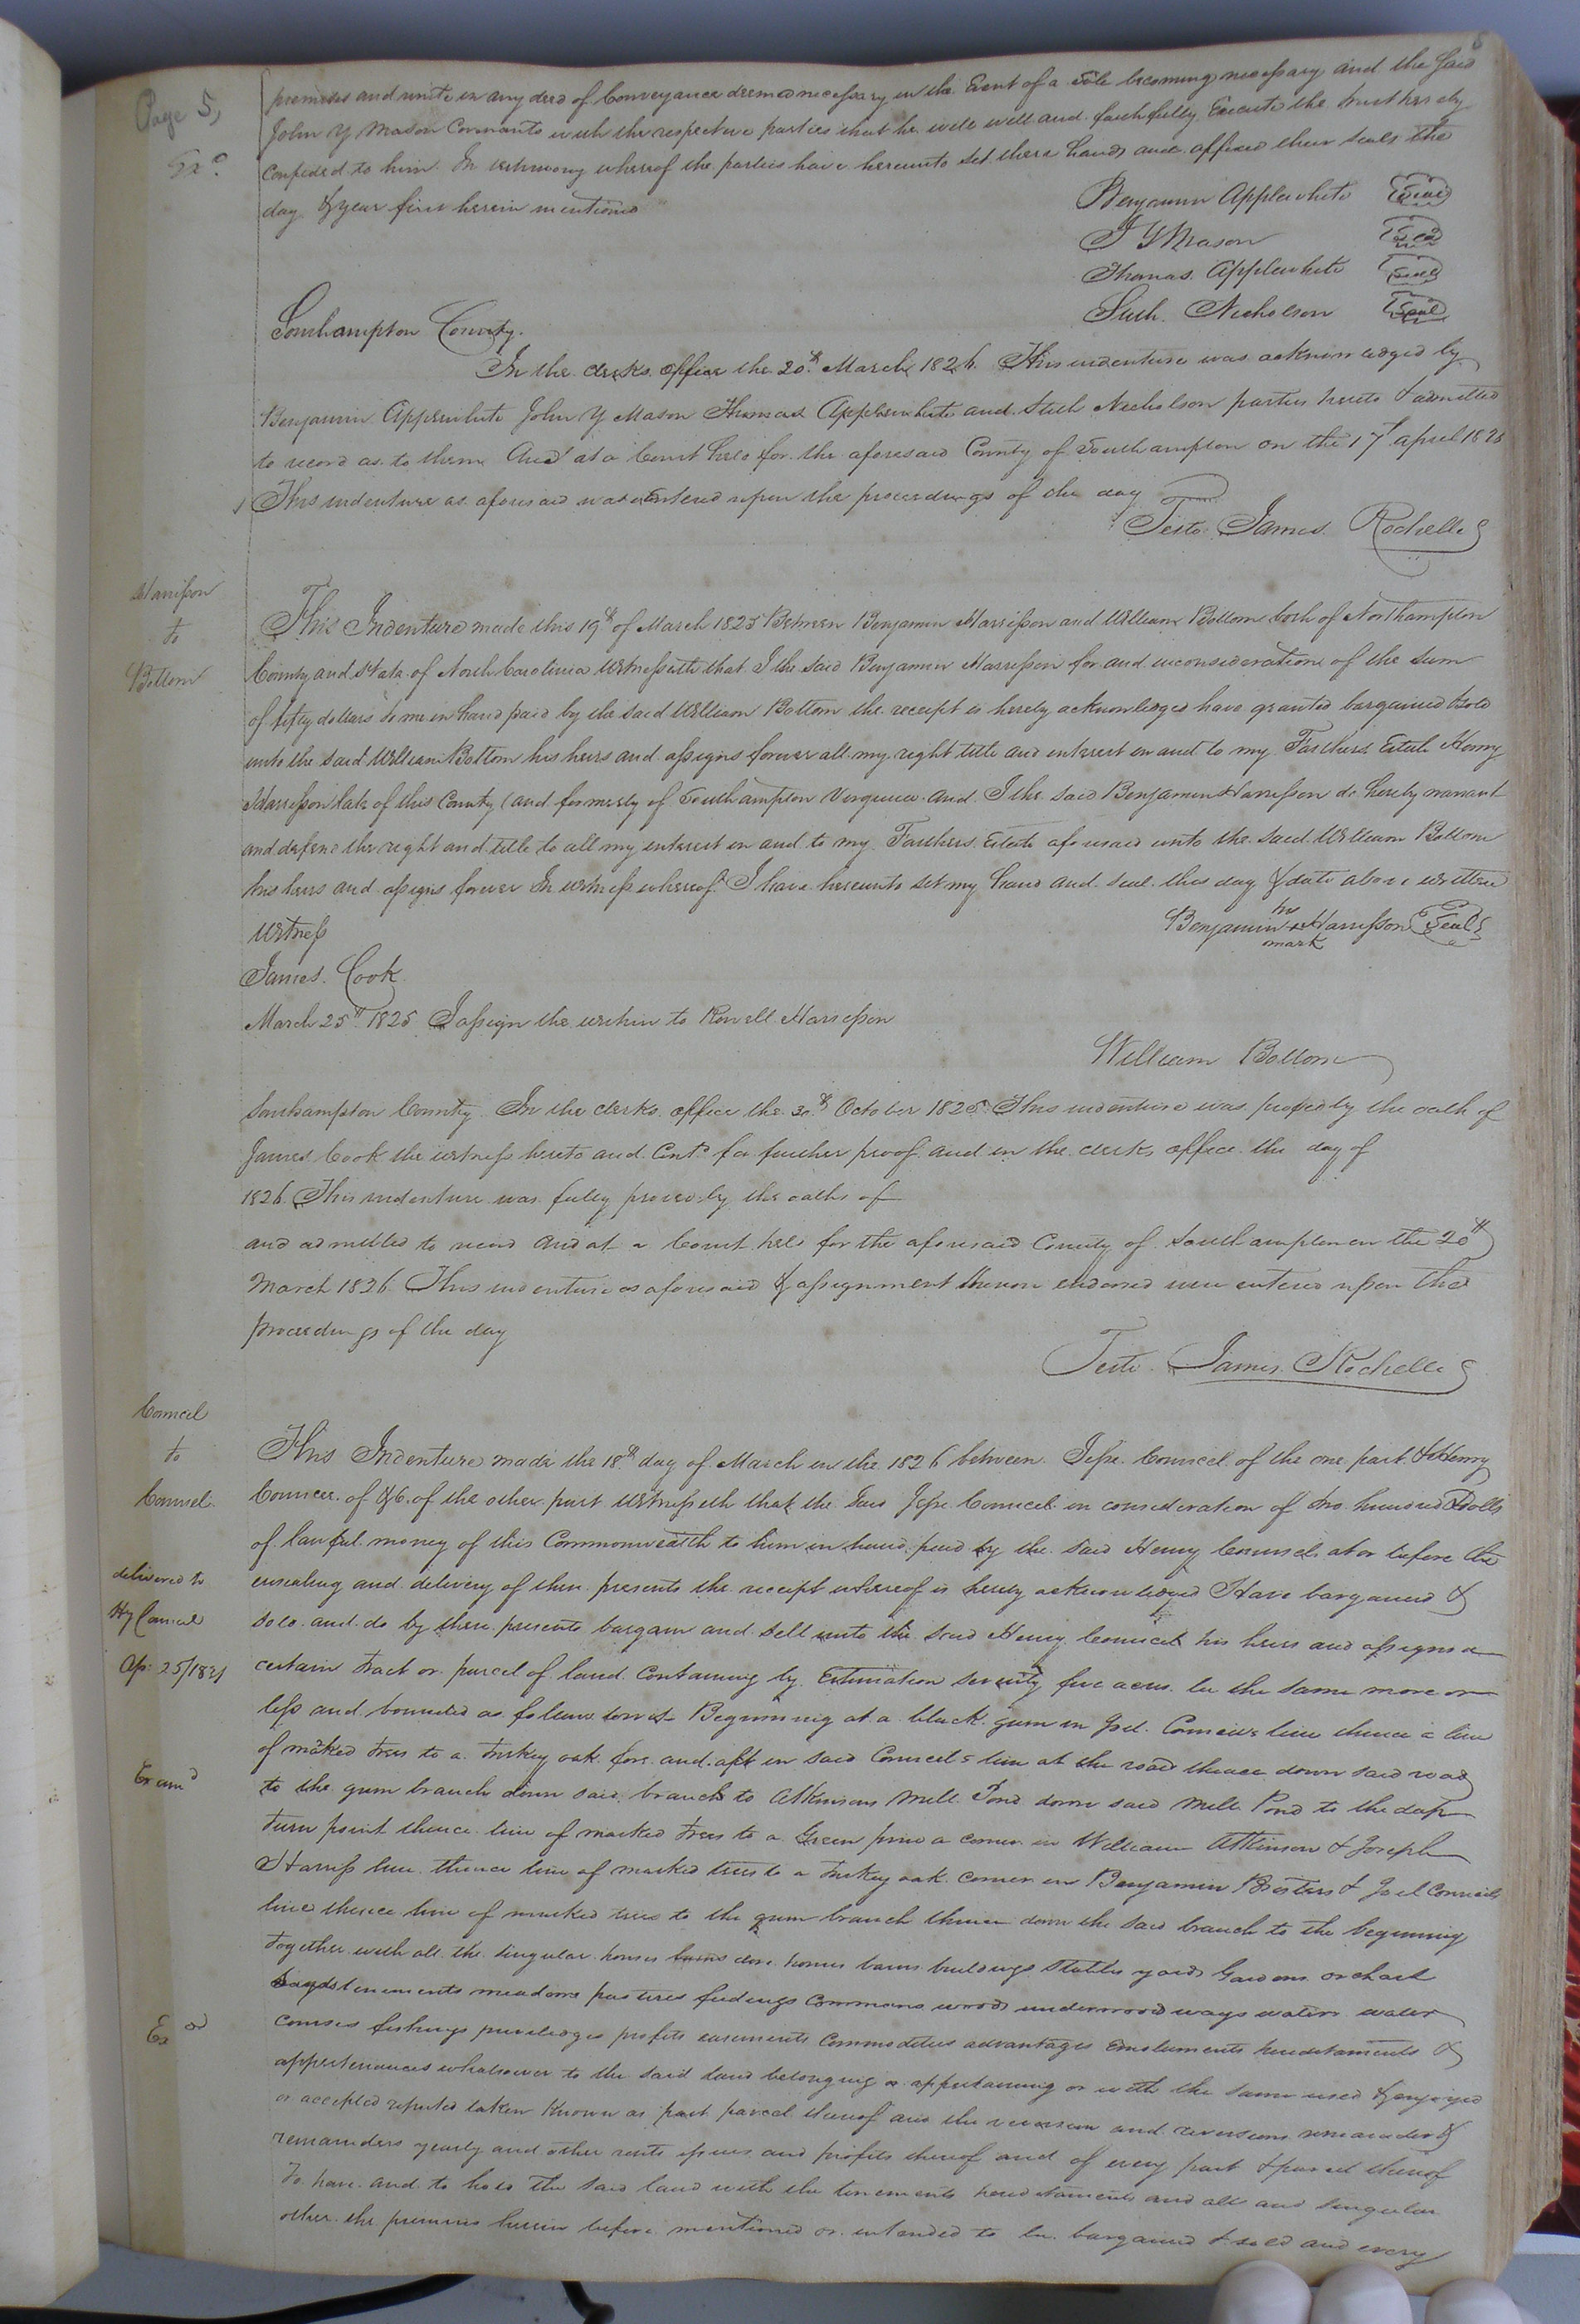 5
Page 5,
Exd
premises and unite in any deed of Conveyance deemed necessary in the Event of a Sale becoming necessary and the Said
John Y Mason Covenants with the respective parties that he will well and faithfully Execute the trust hereby
confided to him. In testimony whereof the parties have hereunto set there hands and affixed their seals the
day & year first herein mentioned
Benjamin Applewhite Seal
J Y Mason Seal
Thomas Applewhite Seal
Nicholson Seal
Southampton County.
In the clerks office the 20th March 1826. This indenture was acknowledged by
Benjamin Applewhite John Y Mason Thomas Applewhite and Nicholson parties hereto & admitted
to record as to them And at a Court held for the aforesaid County of Southampton on the 17th april 1826
This indenture as aforesaid was entered upon the proceedings of the day
Teste James Rochelle
Harrisson
to
Bottom
This Indenture made this 19th of March 1825 Between Benjamin Harrisson and William Bottom both of Northampton
County and State of North Carolina Witnesseth that I the said Benjamin Harrisson for and inconsideration of the sum
of fifty dollars to me in hand paid by the said William Bottom the receipt is hereby acknowledged have granted bargained & sold
unto the said William Bottom his heirs and assigns forever all my right title and interest in and to my Farthers Estate Henry
Harrisson late of this County (and formerly of Southampton Virginia and I the said Benjamin Harrisson do hereby warrant
and defend the right and title to all my interest in and to my Farthers Estate aforesaid unto the said William Bottom
his heirs and assigns forever In witness whereof I have hereunto set my hand and seal this day & date above written
Witness
his
Benjamin x Harrisson Seal
mark
James Cook
March 25th 1825 I assign the within to Harrisson
William Bottom
Southampton County In the clerks office the 30th October 1825 This indenture was proved by the oath of
James Cook the witness hereto and Contd for further proof and in the clerks office the day of
1826 This indenture was fully proved by the oaths of
and admitted to record And at a Court held for the aforesaid County of Southampton on the 20th
March 1826 This indenture as aforesaid & assignment thereon endorsed were entered upon the
proceedings of the day
Teste James Rochelle
Council
to
Council
This Indenture made the 18th day of March in the 1826 between Jesse Council of the one part & Henry
Council of &C. of the other part Witnesseth that the Said Jesse Council in consideration of two hundred Dolls
of lawful money of this Commonwealth to him in hand paid by the said Henry Council at or before the
delivered to
Hy Council
ensealing and delivery of these presents the receipt whereof is hereby acknowledged Have bargained &
sold and do by these presents bargain and sell unto the said Henry Council his heirs and assigns a
certain tract or parcel of land Containing by Estimation seventy five acres be the same more or
less and bounded as follows towit Beginning at a black gum in Joel Councils line thence a line
of maked trees to a turkey oak fore and aft in said Councils line at the road thence down said road
Examd
to the gum branch down said branch to Atkinsons Mill Pond down said Mill Pond to the
turn point thence line of marked trees to a Green pine a corner in William Atkinson & Joseph
Harriss line thence line of marked trees to a turkey oak corner in Benjamin & Joel Councils
line thence line of marked trees to the gum branch thence down the said branch to the beginning
together with all the singular houses barns dove houses barns buildings stables yards Gardens orchard
tenements meadows pastures feedings Commons woods underwoods ways waters water
Exd
courses fishings priviledges profits easements Commodities advantages Emoluments heredetaments &
appertenances whatsoever to the said land belonging or appertaining or with the same used & enjoyed
or accepted reputed taken known as part parcel thereof and the reversion and reversions remainder &
remainders yearly and other rents issues and profits thereof and of every part & parcel thereof
To have and to hold the said land with the tenements heredetaments and all and singular
other the premises herein before mentioned or intended to be bargained & sold and every